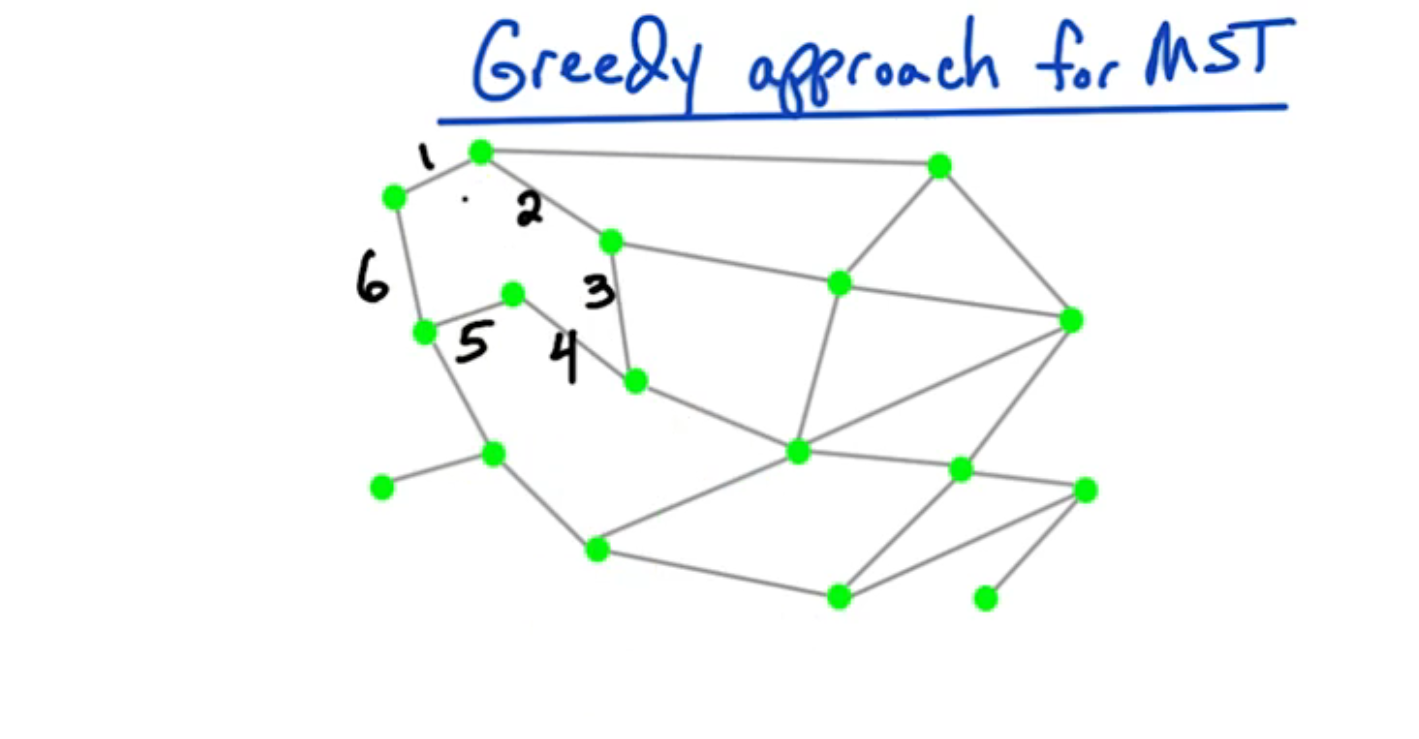 Greedy approach for MST
1
2
6
3
5
4